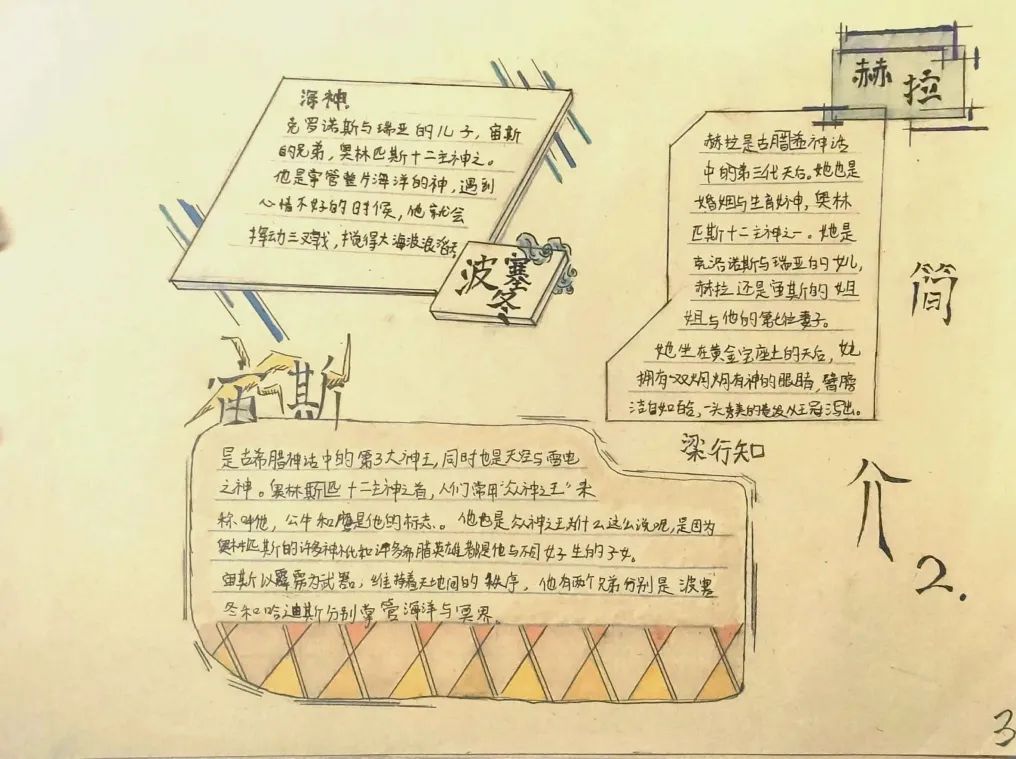 海神
克罗诺斯与瑞亚的儿子，宙斯
的兄弟，奥林匹斯十二主神之。
他是掌管整片海洋的神，遇到
心情不好的时候，他就会
挥动三叉戟，搅得大海波浪滔天
波塞冬
赫拉
赫拉是古腊神话
中的第三代天后。她也是
婚姻与生育女神，奥林
匹斯十二主神之一。她是
克洛诺斯与瑞亚的女儿，
赫拉还是宙斯的姐
姐与他的第七位妻子。
她坐在黄金宝座上的天后，她
拥有一双炯炯有神的眼睛，臂膀
洁白如，一头美的卷发从王冠泻出。
梁行知
简介2.
宙斯
是古希腊神话中的第3大神王，同时也是天空与雷电
之神。奥林斯匹十二主神之首，人们常用“众神之王”来
称呼他，公牛和鹰是他的标志。他也是众神之王为什么这么说呢，是因为
奥林匹斯的许多神和许多希腊英雄都是他与不同女子生的子女。
宙斯以霹雳为武器，维持着天地间的秩序，他有两个兄弟分别是波塞
冬和哈迪斯分别掌管海洋与冥界。
3